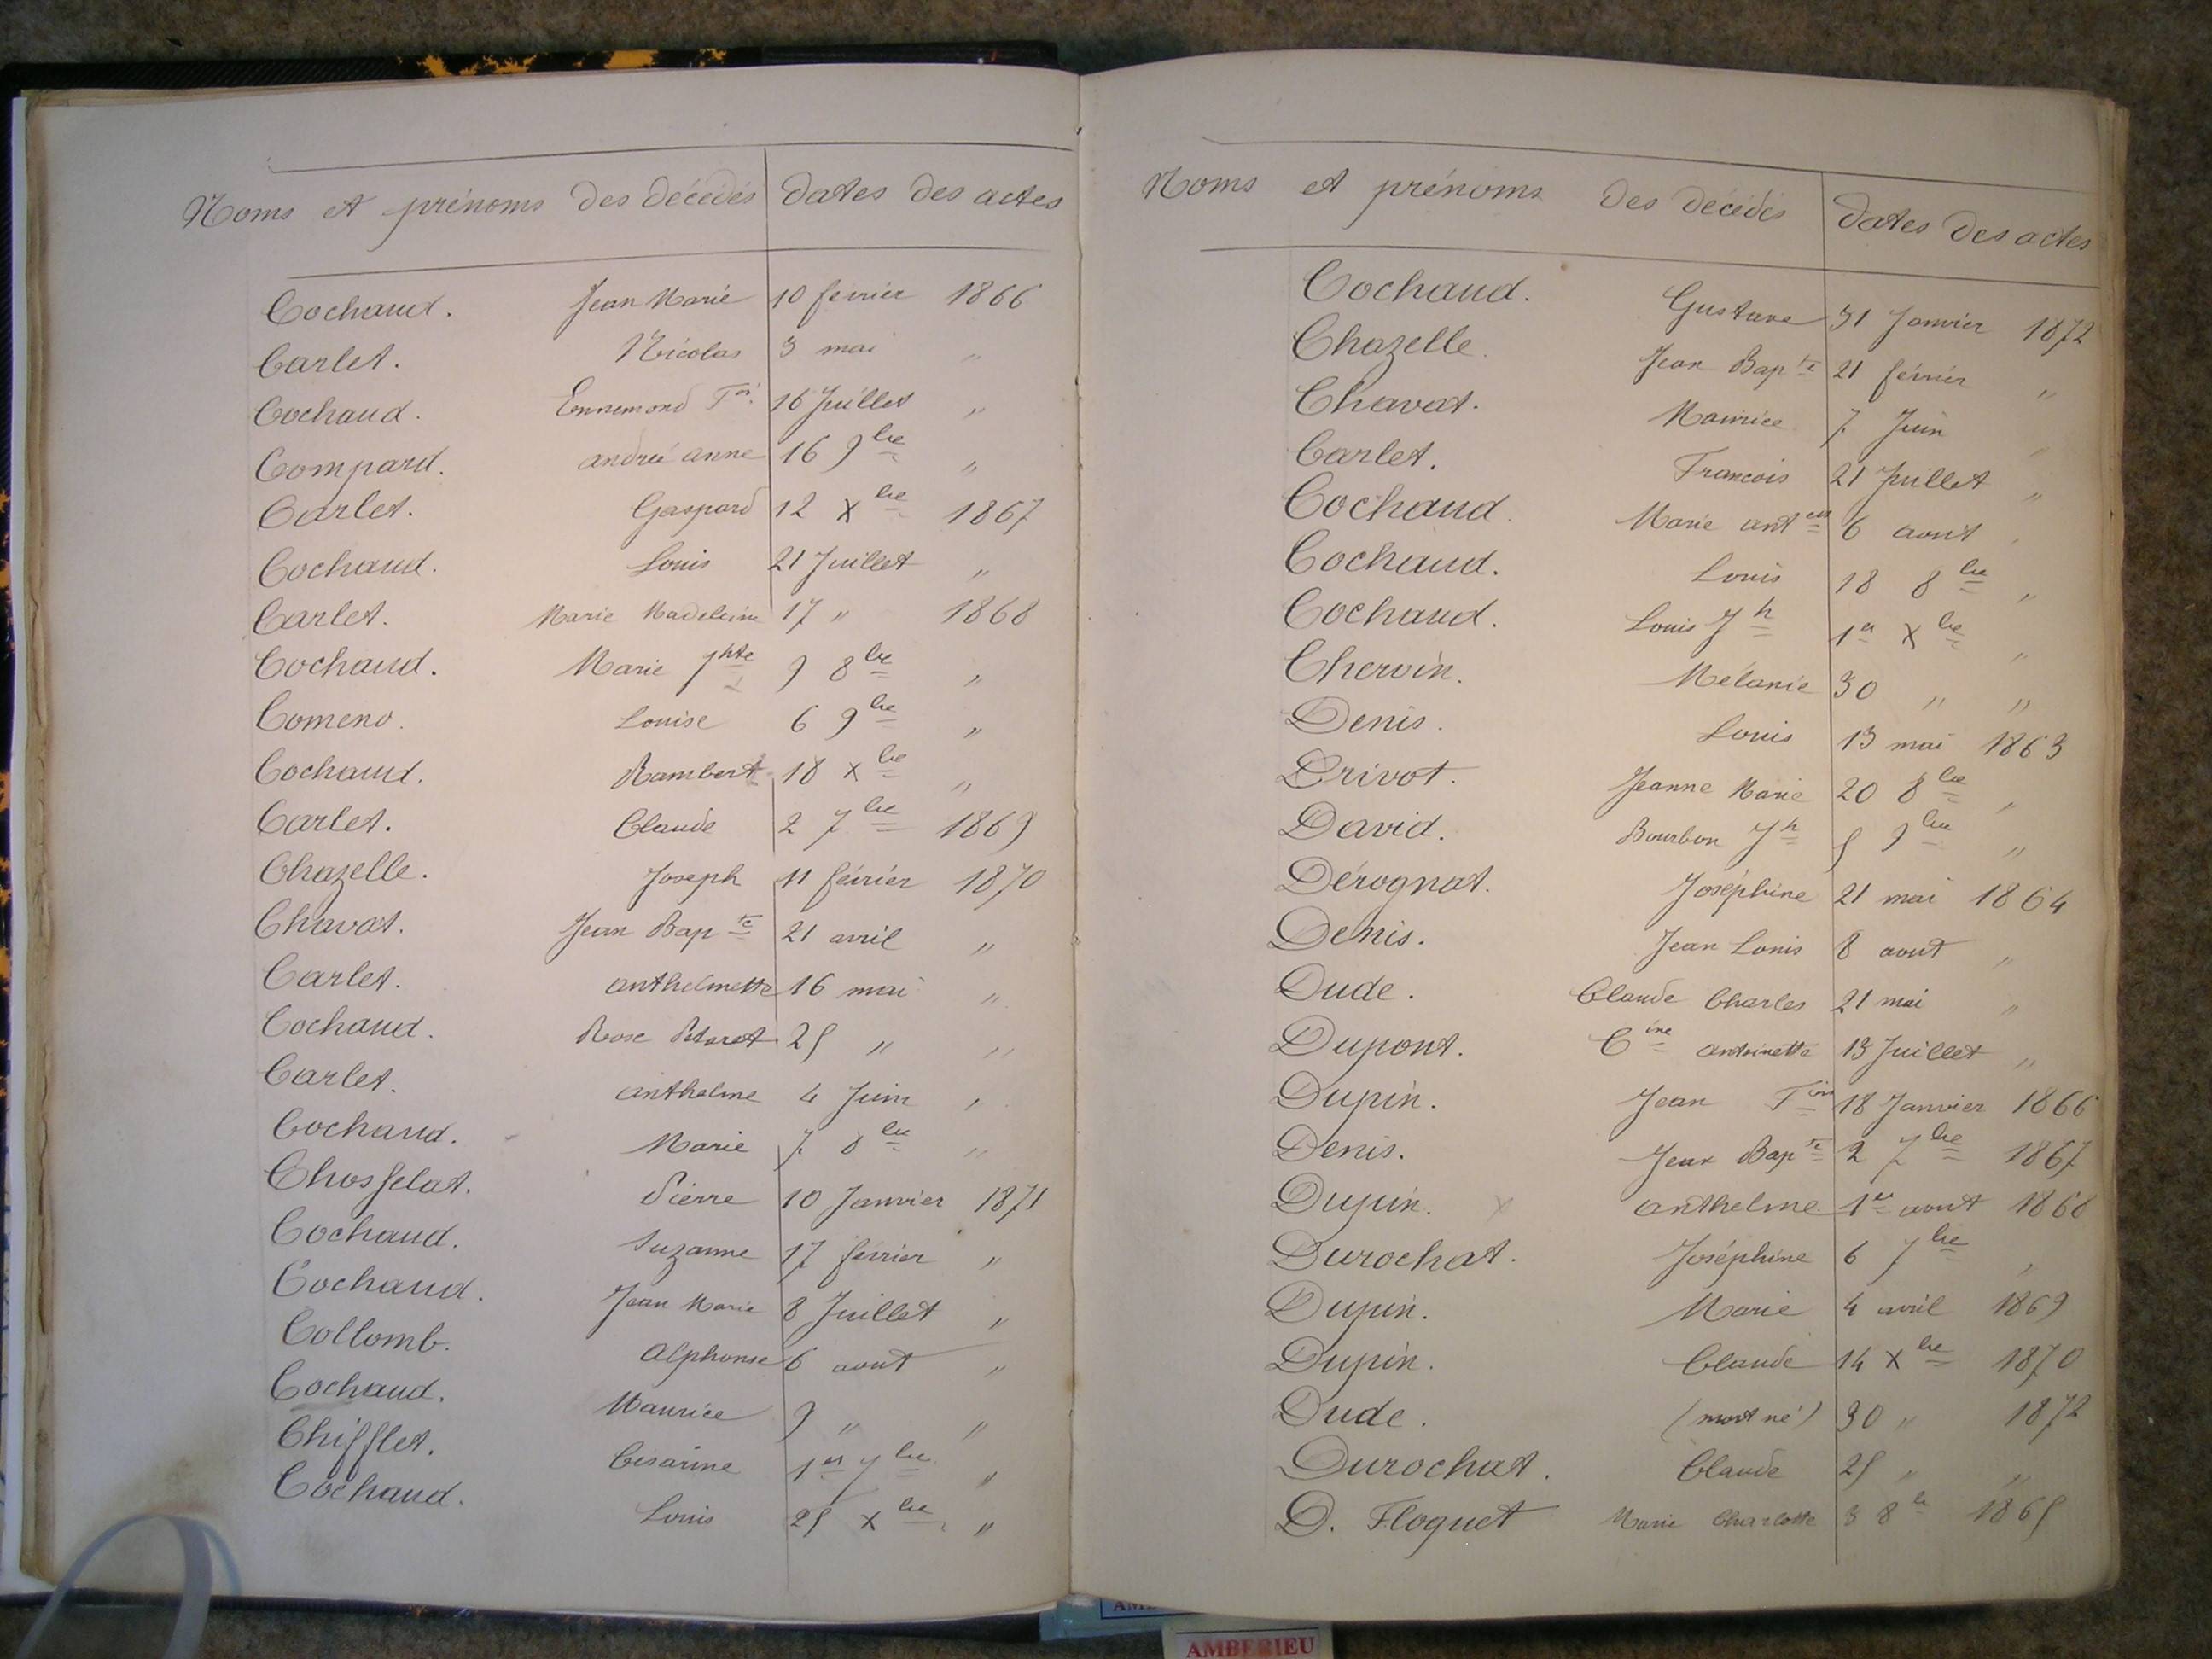 Noms et prénoms des décédés dates des actes
Cochaud. Jean Marie 10 fevrier 1866
Carlet. Nicolas 3 mai "
Cochaud. Ennemond 16 Juillet "
Compard. andrée anne 16 9bre "
Carlet. Gaspard 12 Xbre 1867
Cochaud. Louis 21 Juillet "
Carlet. Marie Madeleine 17 " 1868
Cochaud. Marie Jhte 9 8bre "
Comend. Louise 6 9bre "
Cochaud. Rambert 18 Xbre "
Carlet. Claude 2 7bre 1869
Chazelle. Joseph 11 février 1870
Chavat. Jean Bapte 21 avril "
Carlet. anthelmette 16 mai "
Cochaud. Rose 25 " "
Carlet. anthelme 4 Juin "
Cochaud. Marie 7 8bre "
Chosselat. Pierre 10 Janvier 1871
Cochaud. Suzanne 17 février "
Cochaud. Jean Marie 8 Juillet "
Collomb. Alphonse 6 aout "
Cochaud. Maurice 9 " "
Chifflet. Césarine 1er 7bre "
Cochaud. Louis 25 Xbre "
Noms et prénoms des décédés dates des actes
Cochaud. Gustave 31 Janvier 1872
Chazelle. Jean Bapte 21 février "
Chavat. Maurice 7 Juin "
Carlet. Francois 21 Juillet "
Cochaud. Marie antette 6 aout "
Cochaud. Louis 18 8bre "
Cochaud. Louis Jh 1er Xbre "
Chervin. Mélanie 30 " "
Denis. Louis 13 mai 1863
Drivot. Jeanne Marie 20 8bre "
David. Bourbon Jh 5 9bre "
Dérognat. Joséphine 21 mai 1864
Denis. Jean Louis 8 aout "
Dude. Claude Charles 21 mai "
Dupont. Cine antoinette 13 Juillet "
Dupin. Jean 18 Janvier 1866
Denis. Jean Bapte 2 7bre 1867
Dupin. x anthelme 1er aout 1868
Durochat. Joséphine 6 7bre "
Dupin. Marie 4 avril 1869
Dupin. Claude 14 Xbre 1870
Dude. (mort né) 30 " 1872
Durochat. Claude 25 " "
D. Floquet Marie Charlotte 3 8bre 1865
AMBERIEU